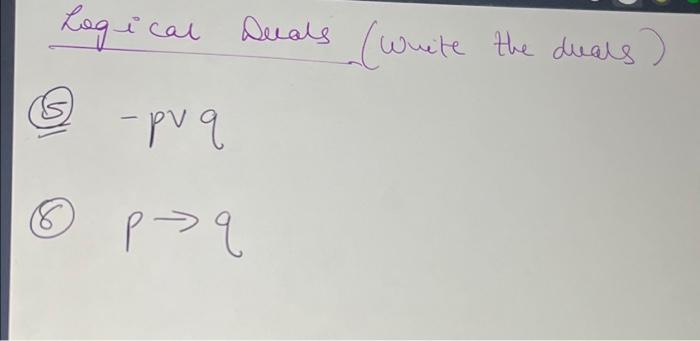 Logical Duals (Write the duals)
⑤ -p∨q
⑧ p→q